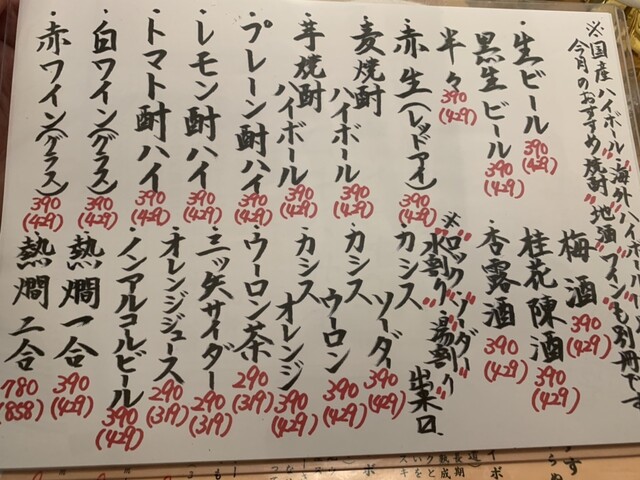 ※国産ハイボール・海外ハイボール
今月のおすすめ"焼酎"地酒"ワインも別冊です
・生ビール 390 (429)
黒生ビール 390 (429)
半々 390 (429)
赤生(レッドアイ) 390 (429)
麦焼酎ハイボール 390 (429)
芋焼酎ハイボール 390 (429)
・プレーン酎ハイ 390 (429)
・レモン酎ハイ 390 (429)
・トマト酎ハイ 390 (429)
・白ワイン(グラス) 390 (429)
・赤ワイン(グラス) 390 (429)
梅酒 390 (429)
桂花陳酒 390 (429)
杏露酒 390 (429)
※"ロック""ソーダ"
"水割り""湯割り"出来ロ
カシスソーダ 390 (429)
カシスウーロン 390 (429)
カシスオレンジ 390 (429)
・ウーロン茶 290 (319)
・三ツ矢サイダー 290 (319)
・オレンジジュース 290 (319)
・ノンアルコールビール 390 (429)
・熱燗一合 390 (429)
・熱燗二合 780 (858)